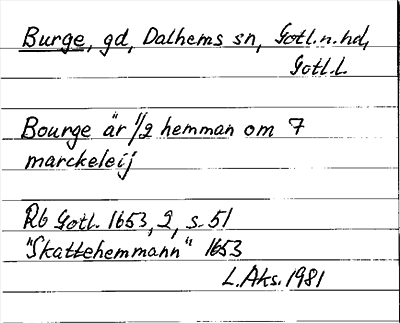 Burge, gd, Dalhems sn, Gotl.n.hd,
Gotl.l.
Bourge är 1/2 hemman om 7
marckeleij
Rb Gotl. 1653, 2, s. 51
"Skattehemmann" 1653
L.Aks. 1981